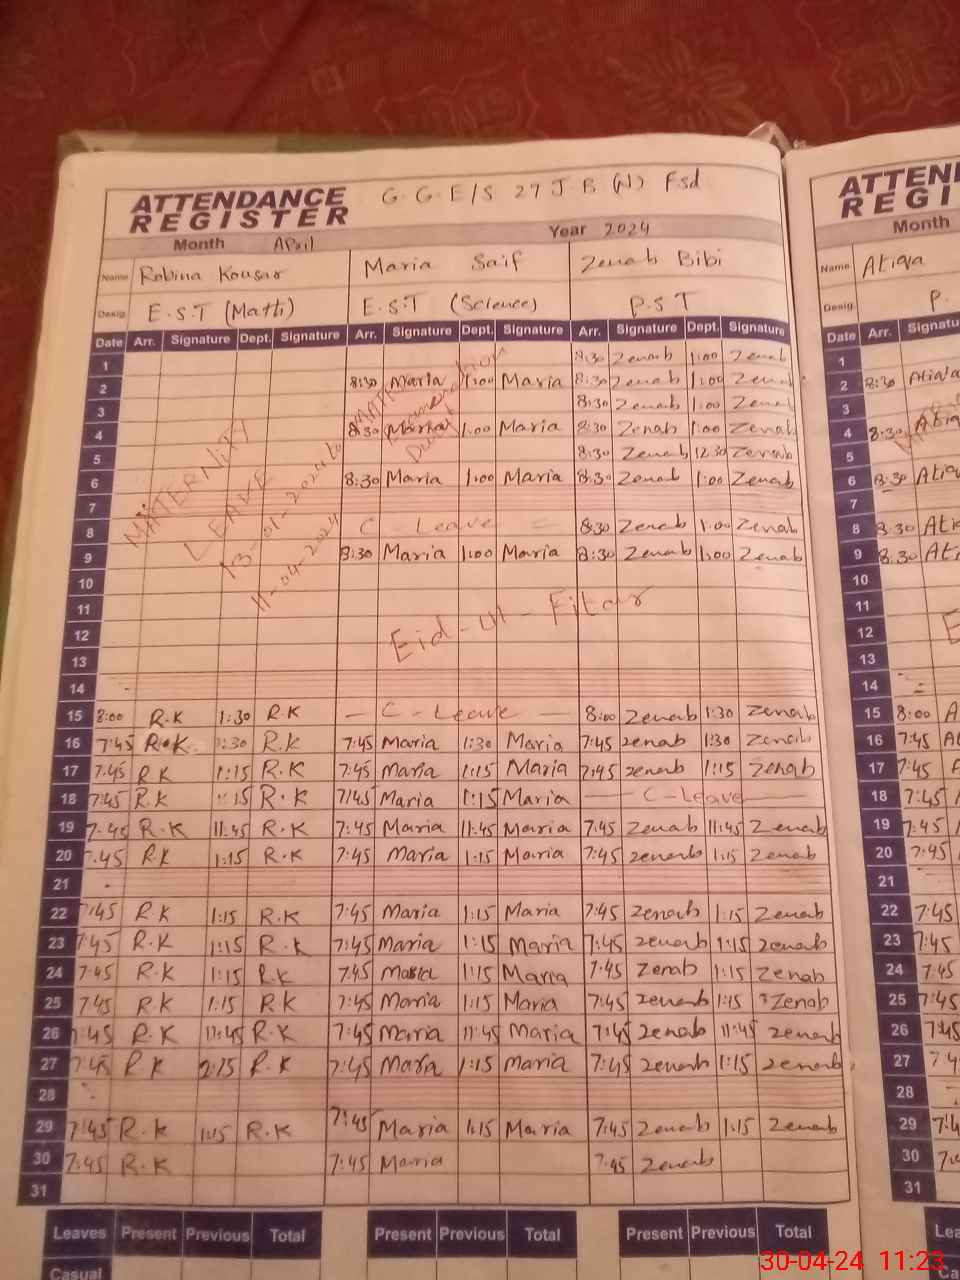 G.G.E/S 27 J.B (N) Fsd
ATTENDANCE REGISTER
Month April Year 2024
Name Robina Kousar Maria Saif Zenab Bibi
Desig. E.S.T (Math) E.S.T (Science) P.S.T
Date Arr. Signature Dept. Signature Arr. Signature Dept. Signature Arr. Signature Dept. Signature
1 8:30 Zenab 1:00 Zenab
2 8:30 Maria 1:00 Maria 8:30 Zenab 1:00 Zenab
3 8:30 Zenab 1:00 Zenab
4 8:30 Maria 1:00 Maria 8:30 Zenab 1:00 Zenab
5 8:30 Zenab 12:30 Zenab
6 8:30 Maria 1:00 Maria 8:30 Zenab 1:00 Zenab
7
8 C - Leave 8:30 Zenab 1:00 Zenab
9 8:30 Maria 1:00 Maria 8:30 Zenab 1:00 Zenab
MATERNITY
LEAVE
13-01-2024 to
11-04-2024
Duty
10
11
12
Eid-ul-Fitar
13
14
15 8:00 R.K 1:30 R.K — C-Leave — 8:00 Zenab 1:30 Zenab
16 7:45 R.K. 1:30 R.K 7:45 Maria 1:30 Maria 7:45 zenab 1:30 Zenab
17 7:45 R.K 1:15 R.K 7:45 Maria 1:15 Maria 7:45 zenab 1:15 Zenab
18 7:45 R.K 1:15 R.K 7:45 Maria 1:15 Maria — C-Leave —
19 7:45 R.K 11:45 R.K 7:45 Maria 11:45 Maria 7:45 Zenab 11:45 Zenab
20 7:45 R.K 1:15 R.K 7:45 Maria 1:15 Maria 7:45 zenab 1:15 Zenab
21
22 7:45 R.K 1:15 R.K 7:45 Maria 1:15 Maria 7:45 zenab 1:15 Zenab
23 7:45 R.K 1:15 R.K 7:45 Maria 1:15 Maria 7:45 zenab 1:15 zenab
24 7:45 R.K 1:15 R.K 7:45 Maria 1:15 Maria 7:45 Zenab 1:15 Zenab
25 7:45 R.K 1:15 R.K 7:45 Maria 1:15 Maria 7:45 zenab 1:15 Zenab
26 7:45 R.K 11:45 R.K 7:45 Maria 11:45 Maria 7:45 zenab 11:45 zenab
27 7:45 R.K 2:15 R.K 7:45 Maria 1:15 Maria 7:45 zenab 1:15 zenab
28
29 7:45 R.K 1:15 R.K 7:45 Maria 1:15 Maria 7:45 Zenab 1:15 Zenab
30 7:45 R.K 7:45 Maria 7:45 Zenab
31
Leaves Present Previous Total Present Previous Total Present Previous Total
Casual
Month
Name Atiqa
Desig. P.
Date Arr.
1
2 8:30 Atiqa
3
4 8:30 Atiq
5
6 8:30 Atiq
7
8 8:30 Ati
9 8:30 Ati
10
11
12
13
14
15 8:00
16 7:45
17 7:45
18 7:45
19 7:45
20 7:45
21
22 7:45
23 7:45
24 7:45
25 7:45
26 7:45
27
28
29
30
31
30-04-24 11:23